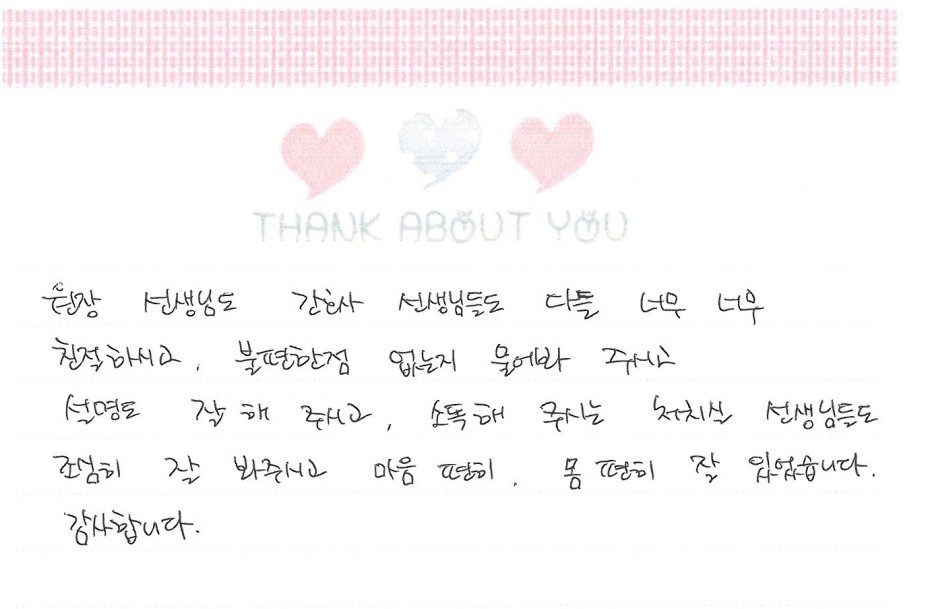 THANK ABOUT YOU
원장 선생님도 간호사 선생님들도 다들 너무 너무
친절하시고, 불편한점 없는지 물어봐 주시고
설명도 잘 해 주시고, 소독해 주시는 처치실 선생님들도
조심히 잘 봐주시고 마음 편히, 몸 편히 잘 있었습니다.
감사합니다.